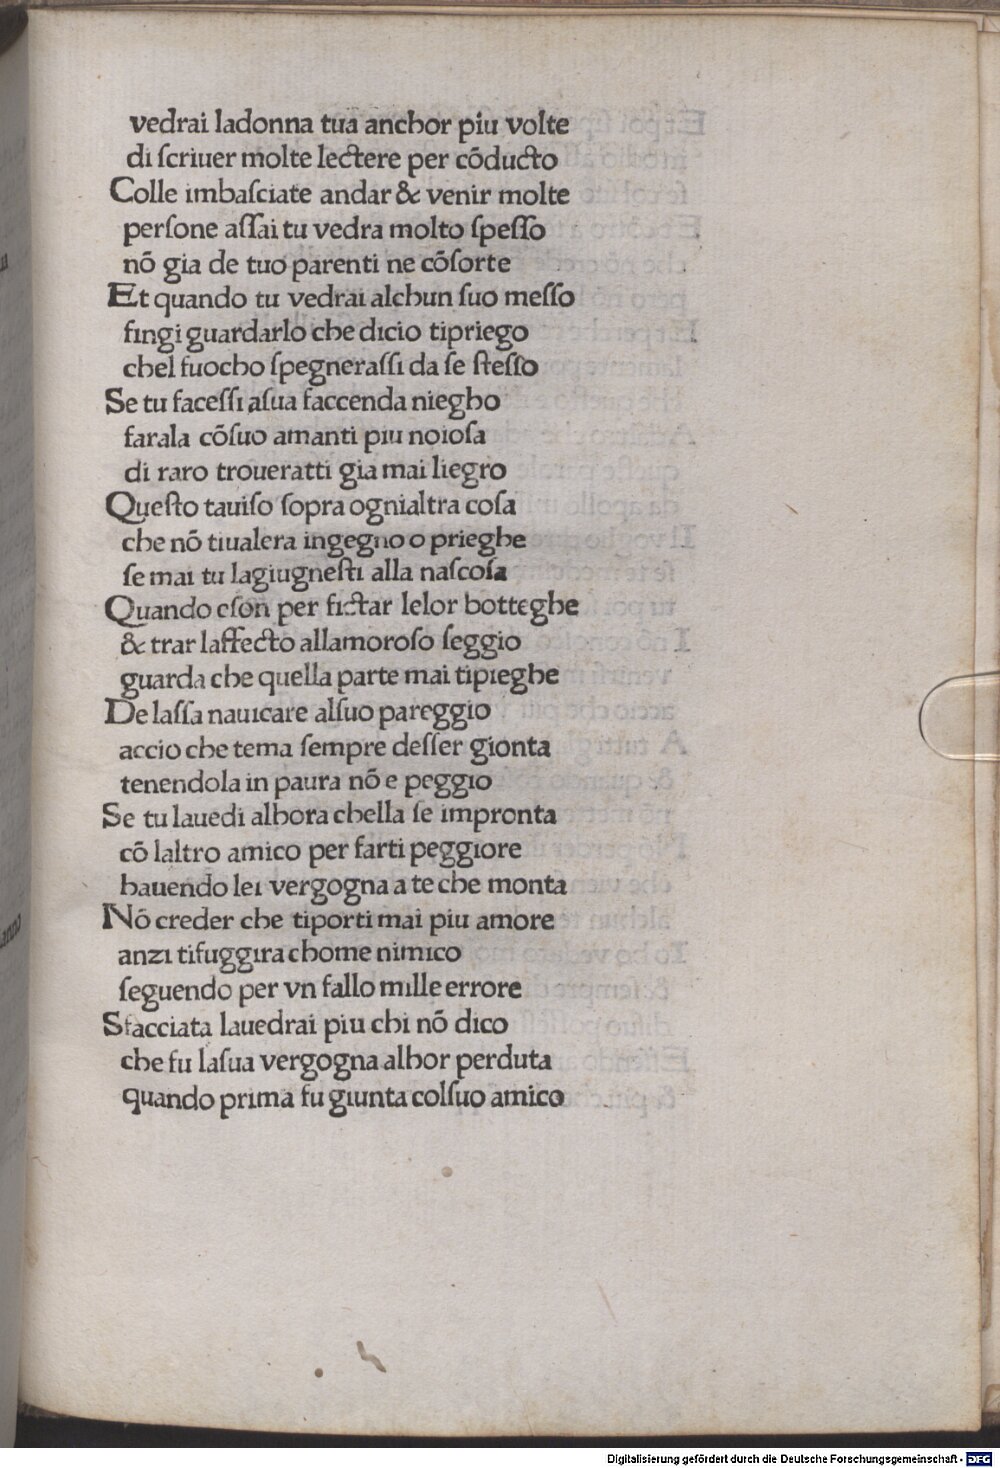 vedrai ladonna tua anchor piu volte
di ſcriuer molte lectere per cōducto
Colle imbaſciate andar & venir molte
perſone aſſai tu vedra molto ſpeſſo
nō gia de tuo parenti ne cōſorte
Et quando tu vedrai alchun ſuo meſſo
fingi guardarlo che dicio tipriego
chel fuocho ſpegneraſſi da ſe ſteſſo
Se tu faceſſi aſua faccenda niegho
farala cōſuo amanti piu noioſa
di raro troueratti gia mai liegro
Queſto tauiſo ſopra ognialtra coſa
che nō tiualera ingegno o prieghe
ſe mai tu lagiugneſti alla naſcoſa
Quando eſon per fictar lelor botteghe
& trar laffecto allamoroſo ſeggio
guarda che quella parte mai tipieghe
De laſſa nauicare alſuo pareggio
accio che tema ſempre deſſer gionta
tenendola in paura nō e peggio
Se tu lauedi alhora chella ſe impronta
cō laltro amico per farti peggiore
hauendo lei vergogna a te che monta
Nō creder che tiporti mai piu amore
anzi tifuggira chome nimico
ſeguendo per vn fallo mille errore
Sfacciata lauedrai piu chi nō dico
che fu laſua vergogna alhor perduta
quando prima fu giunta colſuo amico
Digitalisierung gefördert durch die Deutsche Forschungsgemeinschaft - DFG